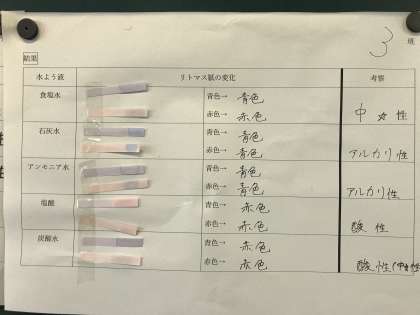 3 班
結果
水よう液 リトマス紙の変化 考察
食塩水 青色→ 青色
赤色→ 赤色 中性
石灰水 青色→ 青色
赤色→ 青色 アルカリ性
アンモニア水 青色→ 青色
赤色→ 青色 アルカリ性
塩酸 青色→ 赤色
赤色→ 赤色 酸性
炭酸水 青色→ 赤色
赤色→ 赤色 酸性(中性